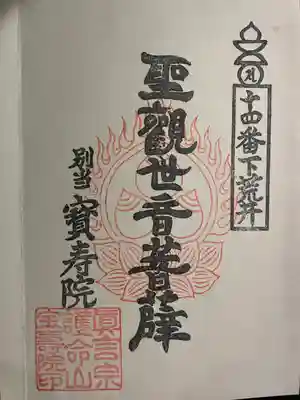 十四番下荒井
聖觀世音菩薩
別当 寳寿院
眞言宗
護命山